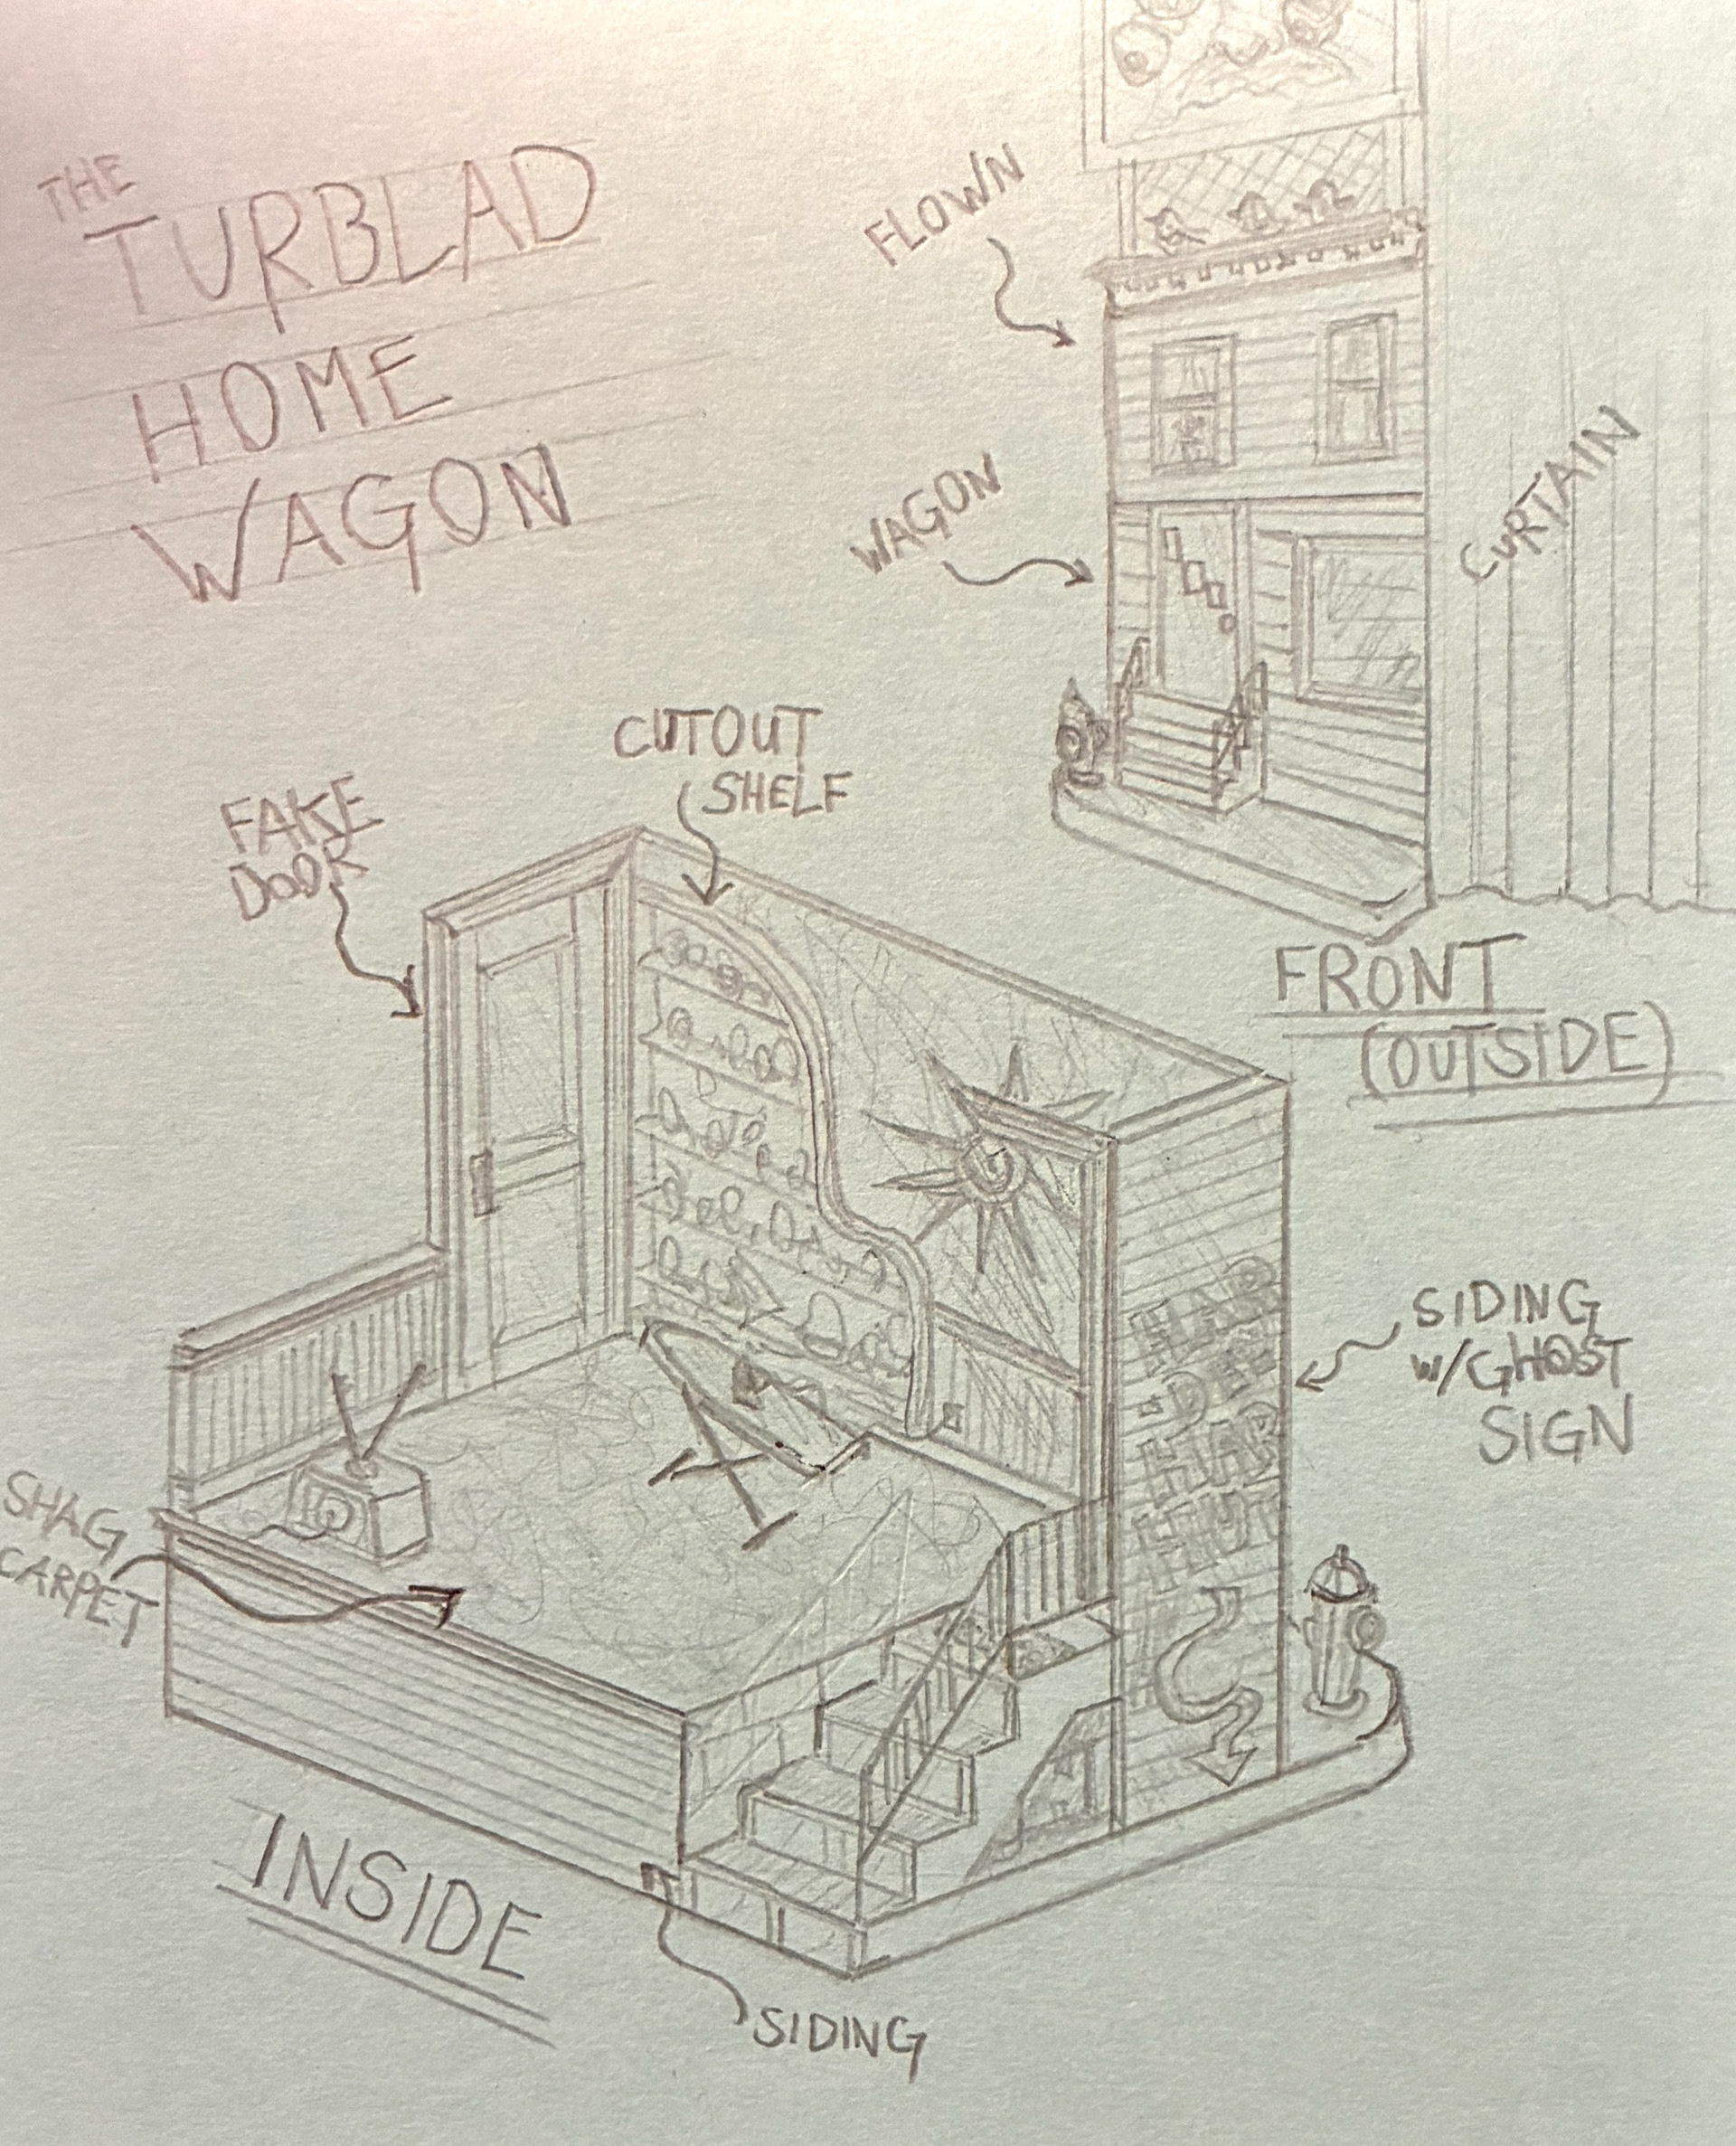 THE
TURBLAD
HOME
WAGON
FLOWN
WAGON
CURTAIN
CUTOUT
SHELF
FAKE
DOOR
FRONT
(OUTSIDE)
SIDING
W/GHOST
SIGN
HAR
DEE
HAR
HUT
SHAG
CARPET
INSIDE
SIDING